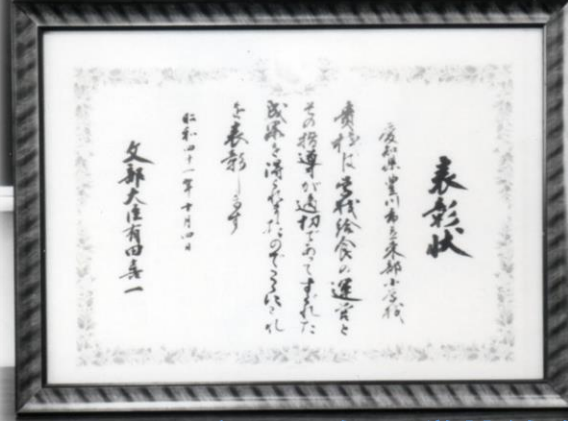 表彰状
愛知県豊川市立東部小学校
貴校は学校給食の運営と
その指導が適切であってすぐれた
成果を得られましたのでここにこれ
を表彰します
昭和四十一年十月四日
文部大臣有田喜一